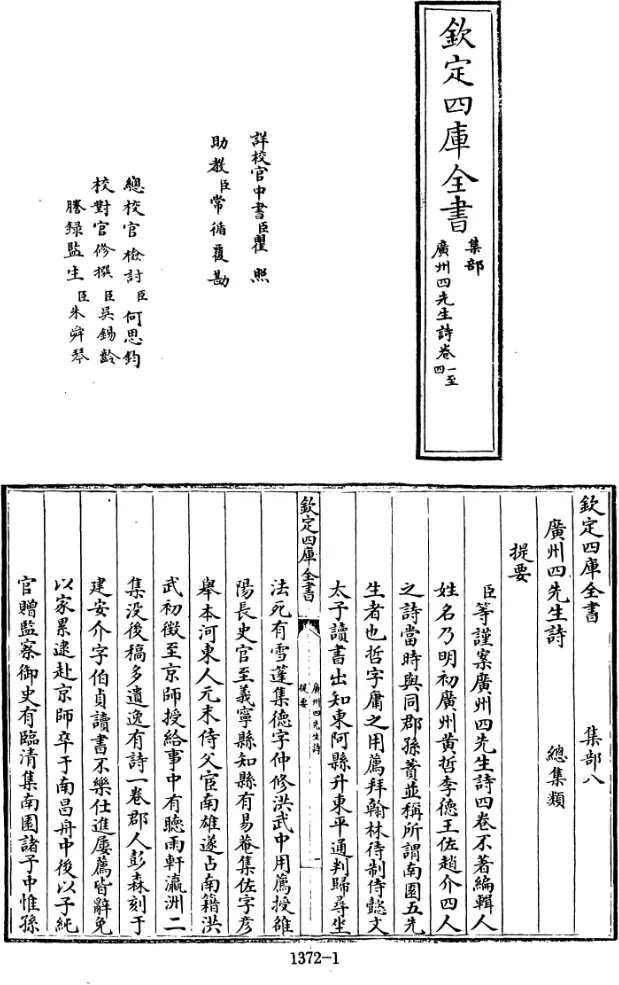 欽定四庫全書
集部
廣州四先生詩卷一至四
詳校官中書臣瞿照
助教臣常循覆勘
總校官檢討臣何思鈞
校對官修撰臣吳錫齡
謄錄監生臣朱舜琴
欽定四庫全書 集部八
廣州四先生詩 總集類
提要
臣等謹案廣州四先生詩四卷不著編輯人
姓名乃明初廣州黃哲李德王佐趙介四人
之詩當時與同郡孫蕡並稱所謂南園五先
生者也哲字庸之用薦拜翰林待制侍懿文
太子讀書出知東阿縣升東平通判歸尋坐
欽定四庫全書 廣州四先生詩 提要 一
法死有雪蓬集德字仲修洪武中用薦授雒
陽長史官至義寧縣知縣有易菴集佐字彥
舉本河東人元末侍父宦南雄遂占南籍洪
武初徵至京師授給事中有聽雨軒瀛洲二
集没後稿多遺逸有詩一卷郡人彭森刻于
建安介字伯貞讀書不樂仕進屢薦皆辭免
以家累逮赴京師卒于南昌舟中後以子純
官贈監察御史有臨清集南園諸子中惟孫
1372-1